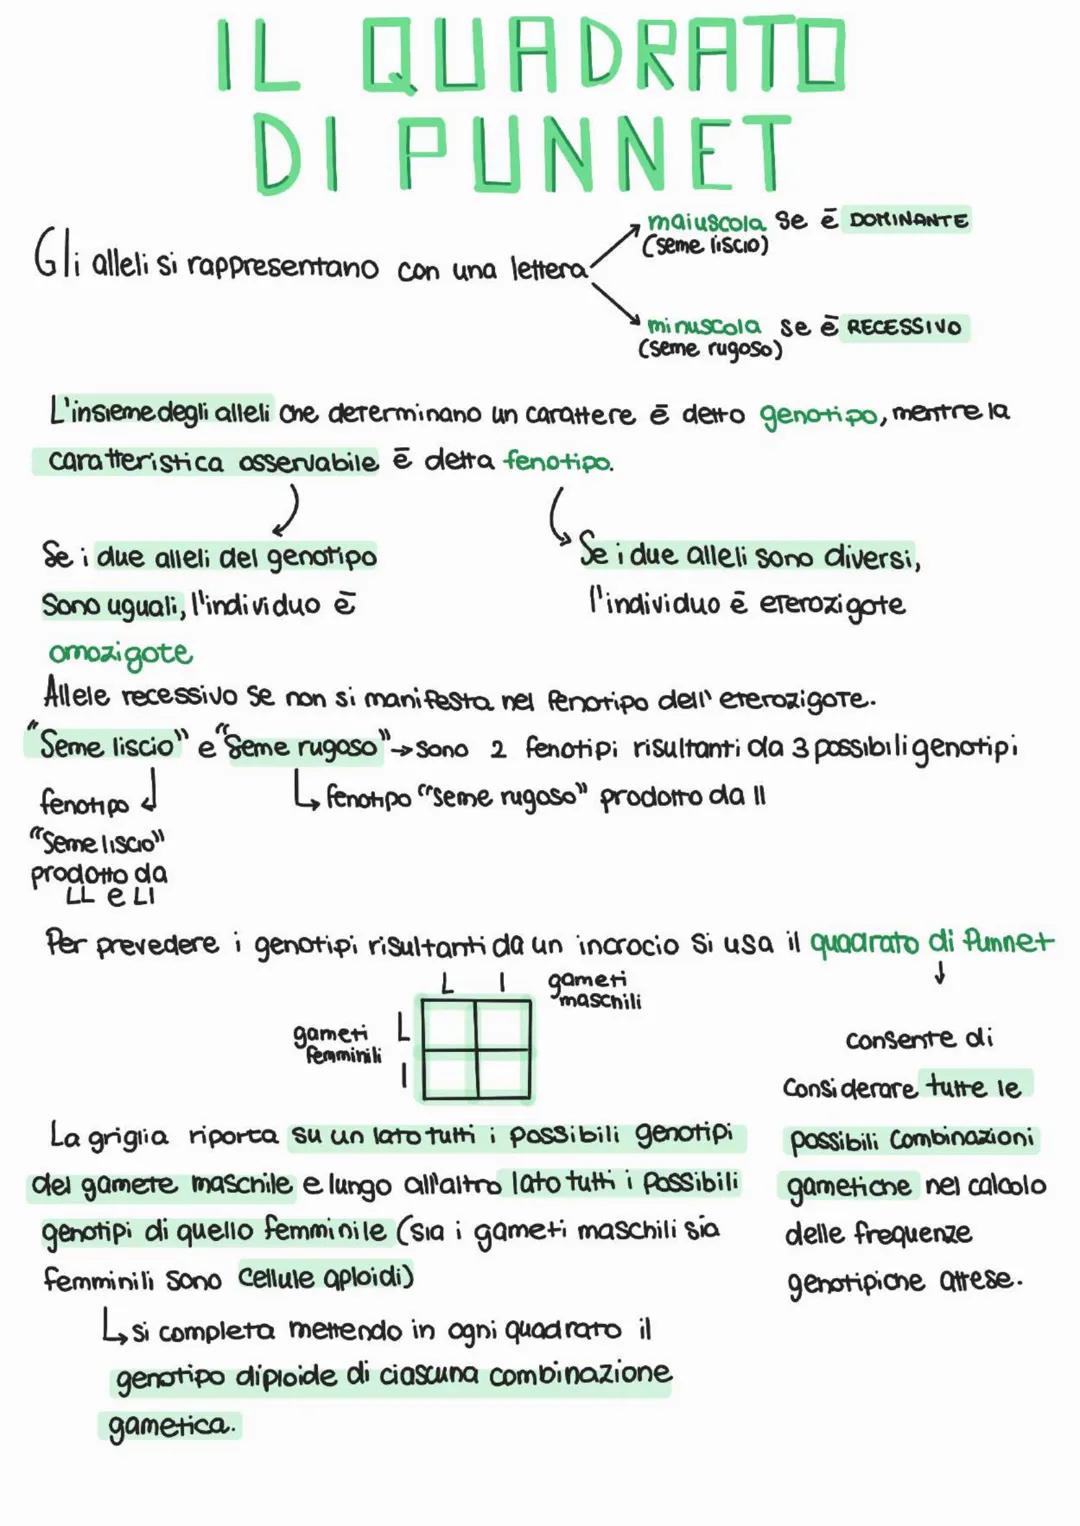 IL QUADRATO
DI PUNNET
Gli alleli si rappresentano con una lettera
maiuscola se ē DOMINANTE
(seme liscio)
minuscola se ē RECESSIVO
(seme rugoso)
L'insieme degli alleli che determinano un carattere ē detto genotipo, mentre la
caratteristica osservabile ē detta fenotipo.
Se i due alleli del genotipo
sono uguali, l'individuo ē
omozigote
Se i due alleli sono diversi,
l'individuo ē eterozigote
Allele recessivo se non si manifesta nel fenotipo dell'eterozigote.
"Seme liscio" e "Seme rugoso" → sono 2 fenotipi risultanti da 3 possibili genotipi
fenotipo
"Seme liscio"
prodotto da
LL e Ll
fenotipo "seme rugoso" prodotto da ll
Per prevedere i genotipi risultanti da un incrocio si usa il quadrato di Punnet
L l gameti
maschili
gameti
femminili
L
l
consente di
considerare tutte le
possibili combinazioni
gametiche nel calcolo
delle frequenze
genotipiche attese.
La griglia riporta su un lato tutti i possibili genotipi
del gamete maschile e lungo all'altro lato tutti i possibili
genotipi di quello femminile (sia i gameti maschili sia
femminili sono cellule aploidi)
si completa mettendo in ogni quadrato il
genotipo diploide di ciascuna combinazione
gametica.